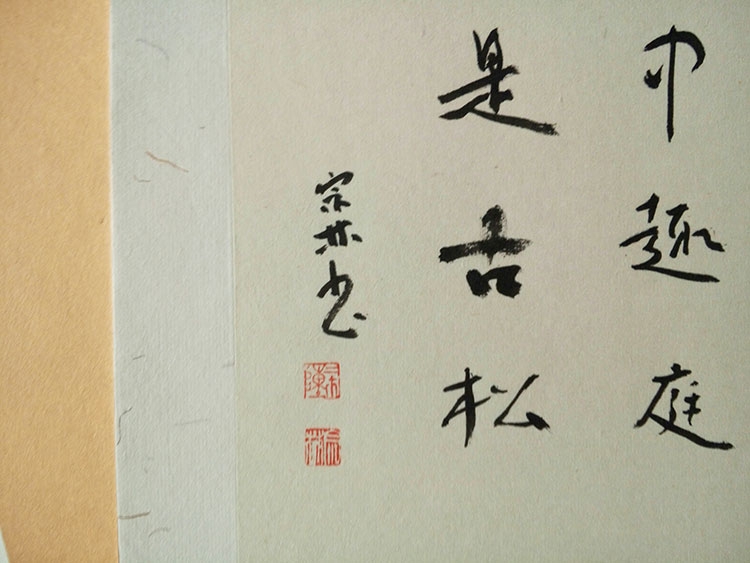 中趣庭
是古松
宗林书